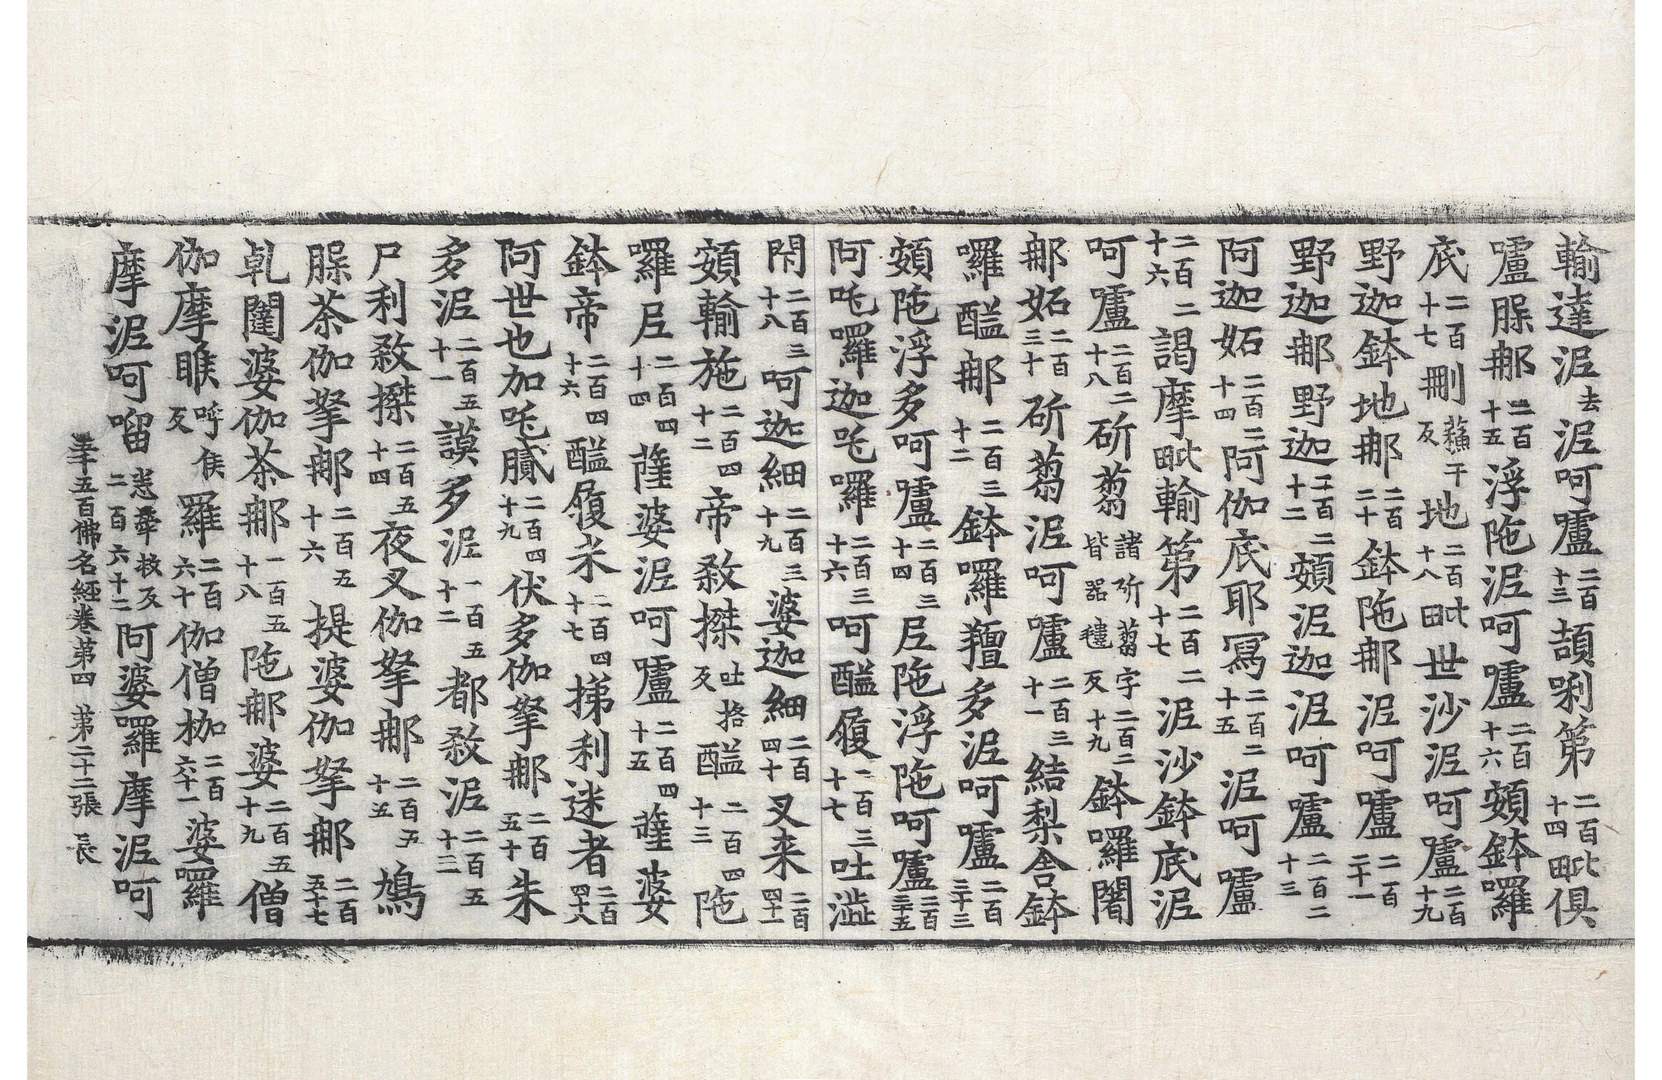 輸達泥去泥呵嚧二百十三頡唎第二百十四毗俱
嚧脲那二百十五浮陁泥呵嚧二百十六頞鉢囉
底二百十七刪蘓干反地二百十八毗世沙泥呵嚧二百十九
野迦鉢地那二百二十鉢陁那泥呵嚧二百二十一
野迦那野迦二百二十二頞泥迦泥呵嚧二百二十三
阿迦妬二百二十四阿伽底耶冩二百二十五泥呵嚧
二百二十六謁摩毗輸第二百二十七泥沙鉢底泥
呵嚧二百二十八斫蒭諸斫蒭字皆器[?]反二百二十九鉢囉闍
那妬二百三十斫蒭泥呵嚧二百三十一結梨舎鉢
囉醯那二百三十二鉢囉羶多泥呵嚧二百三十三
頞陁浮多呵嚧二百三十四𡰱陁浮陁呵嚧二百三十五
阿吒囉迦吒囉二百三十六呵醯履二百三十七吐澁
閇二百三十八呵迦細二百三十九婆迦細二百四十叉来二百四十一
頞輸施二百四十二帝敎搩吐挌反醯二百四十三陁
囉𡰱二百四十四薩婆泥呵嚧二百四十五薩婆
鉢帝二百四十六醯履米二百四十七挮利迷者二百四十八
阿世也加吒膩二百四十九伏多伽拏那二百五十朱
多泥二百五十一謨多泥二百五十二都敎泥二百五十三
尸利敎搩二百五十四夜叉伽拏那二百五十五鳩
脲荼伽拏那二百五十六提婆伽拏那二百五十七
乹闥婆伽荼那二百五十八陁那婆二百五十九僧
伽摩睺呼侯反羅二百六十伽僧枷二百六十一婆囉
摩泥呵㗰二百六十二阿婆囉摩泥呵
五千五百佛名經卷第四　第二十二張　長